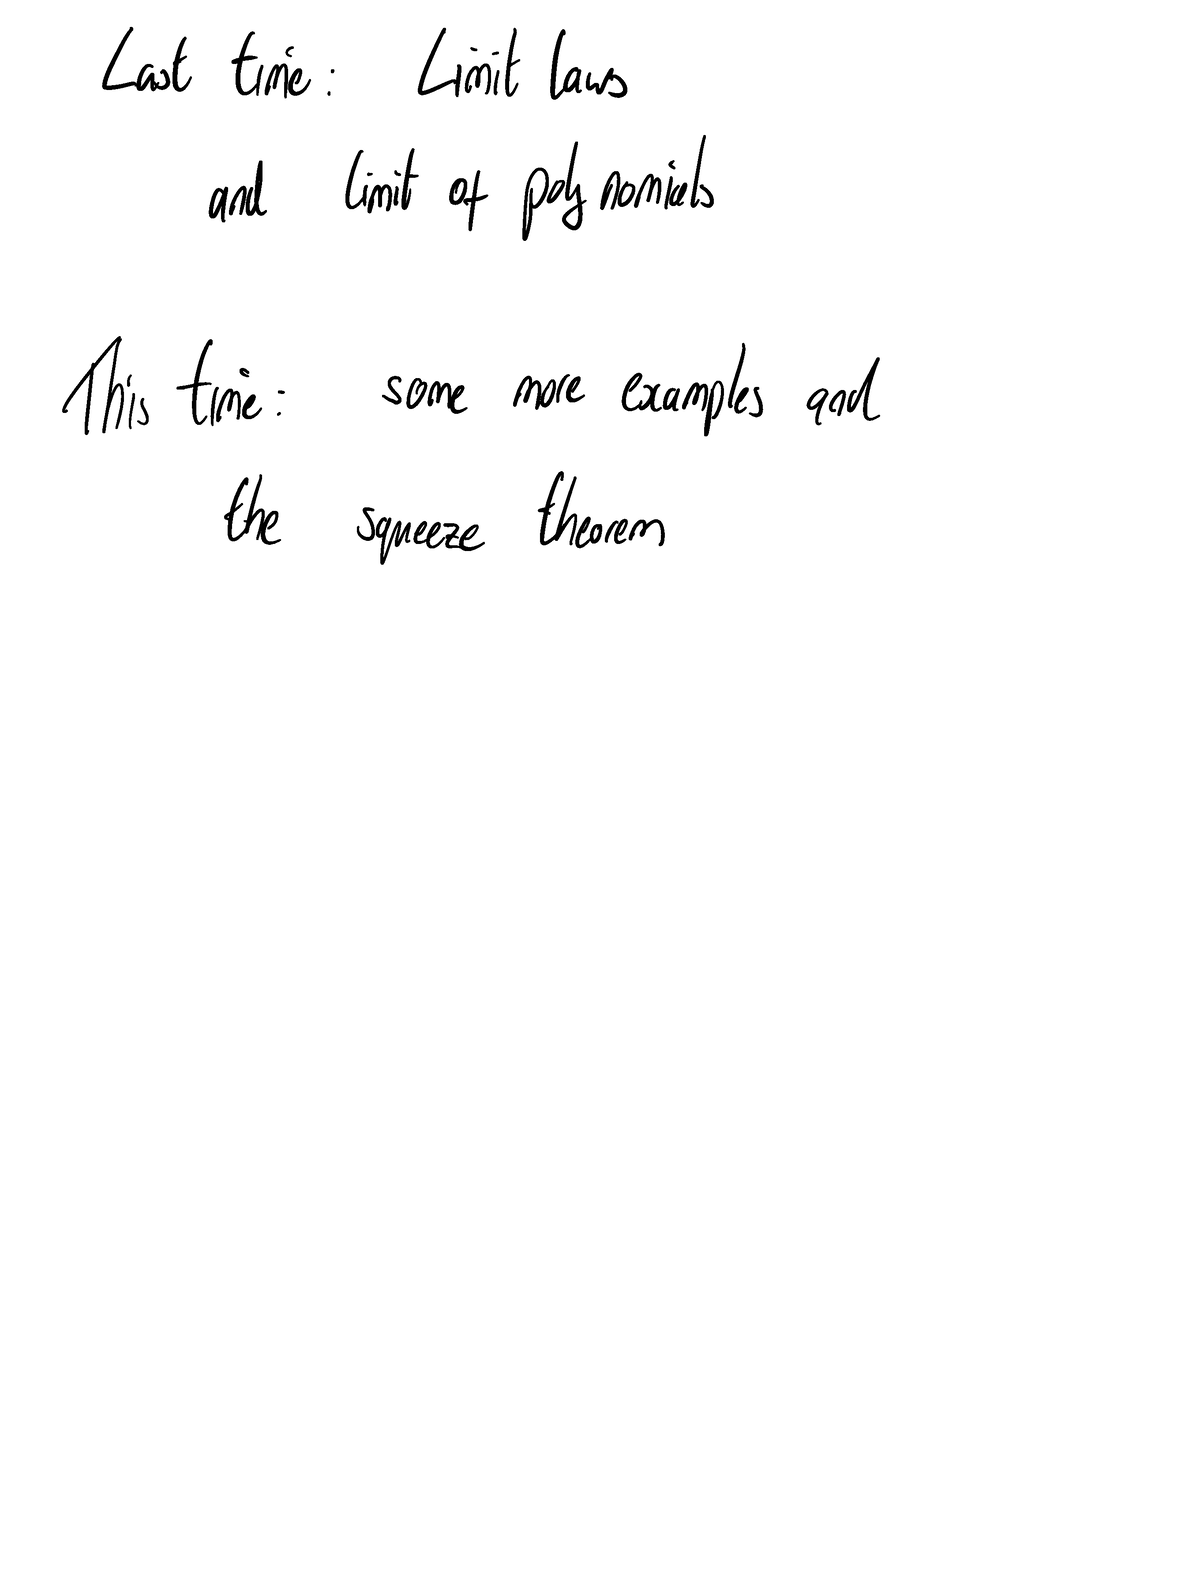 Last time: Limit laws
and limit of polynomials
This time: some more examples and
the squeeze theorem